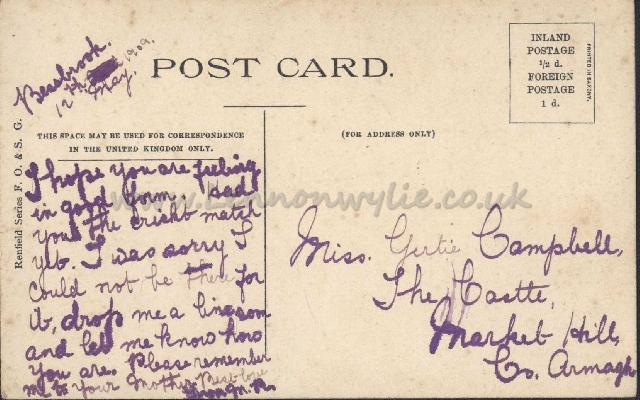 Bessbrook.
12th May. 1909.
POST CARD.
INLAND
POSTAGE
½ d.
FOREIGN
POSTAGE
1 d.
PRINTED IN SAXONY.
THIS SPACE MAY BE USED FOR CORRESPONDENCE
IN THE UNITED KINGDOM ONLY.
(FOR ADDRESS ONLY)
Renfield Series F. O. & S. G.
www.lennonwylie.co.uk
I hope you are feeling
in good form. Had
you the crickt match
yet. I was sorry I
could not be there for
it, drop me a line soon
and let me know how
you are. Please remember
me to your Mother. Best love
from
Miss. Gertie Campbell,
The Castle,
Market Hill,
Co. Armagh